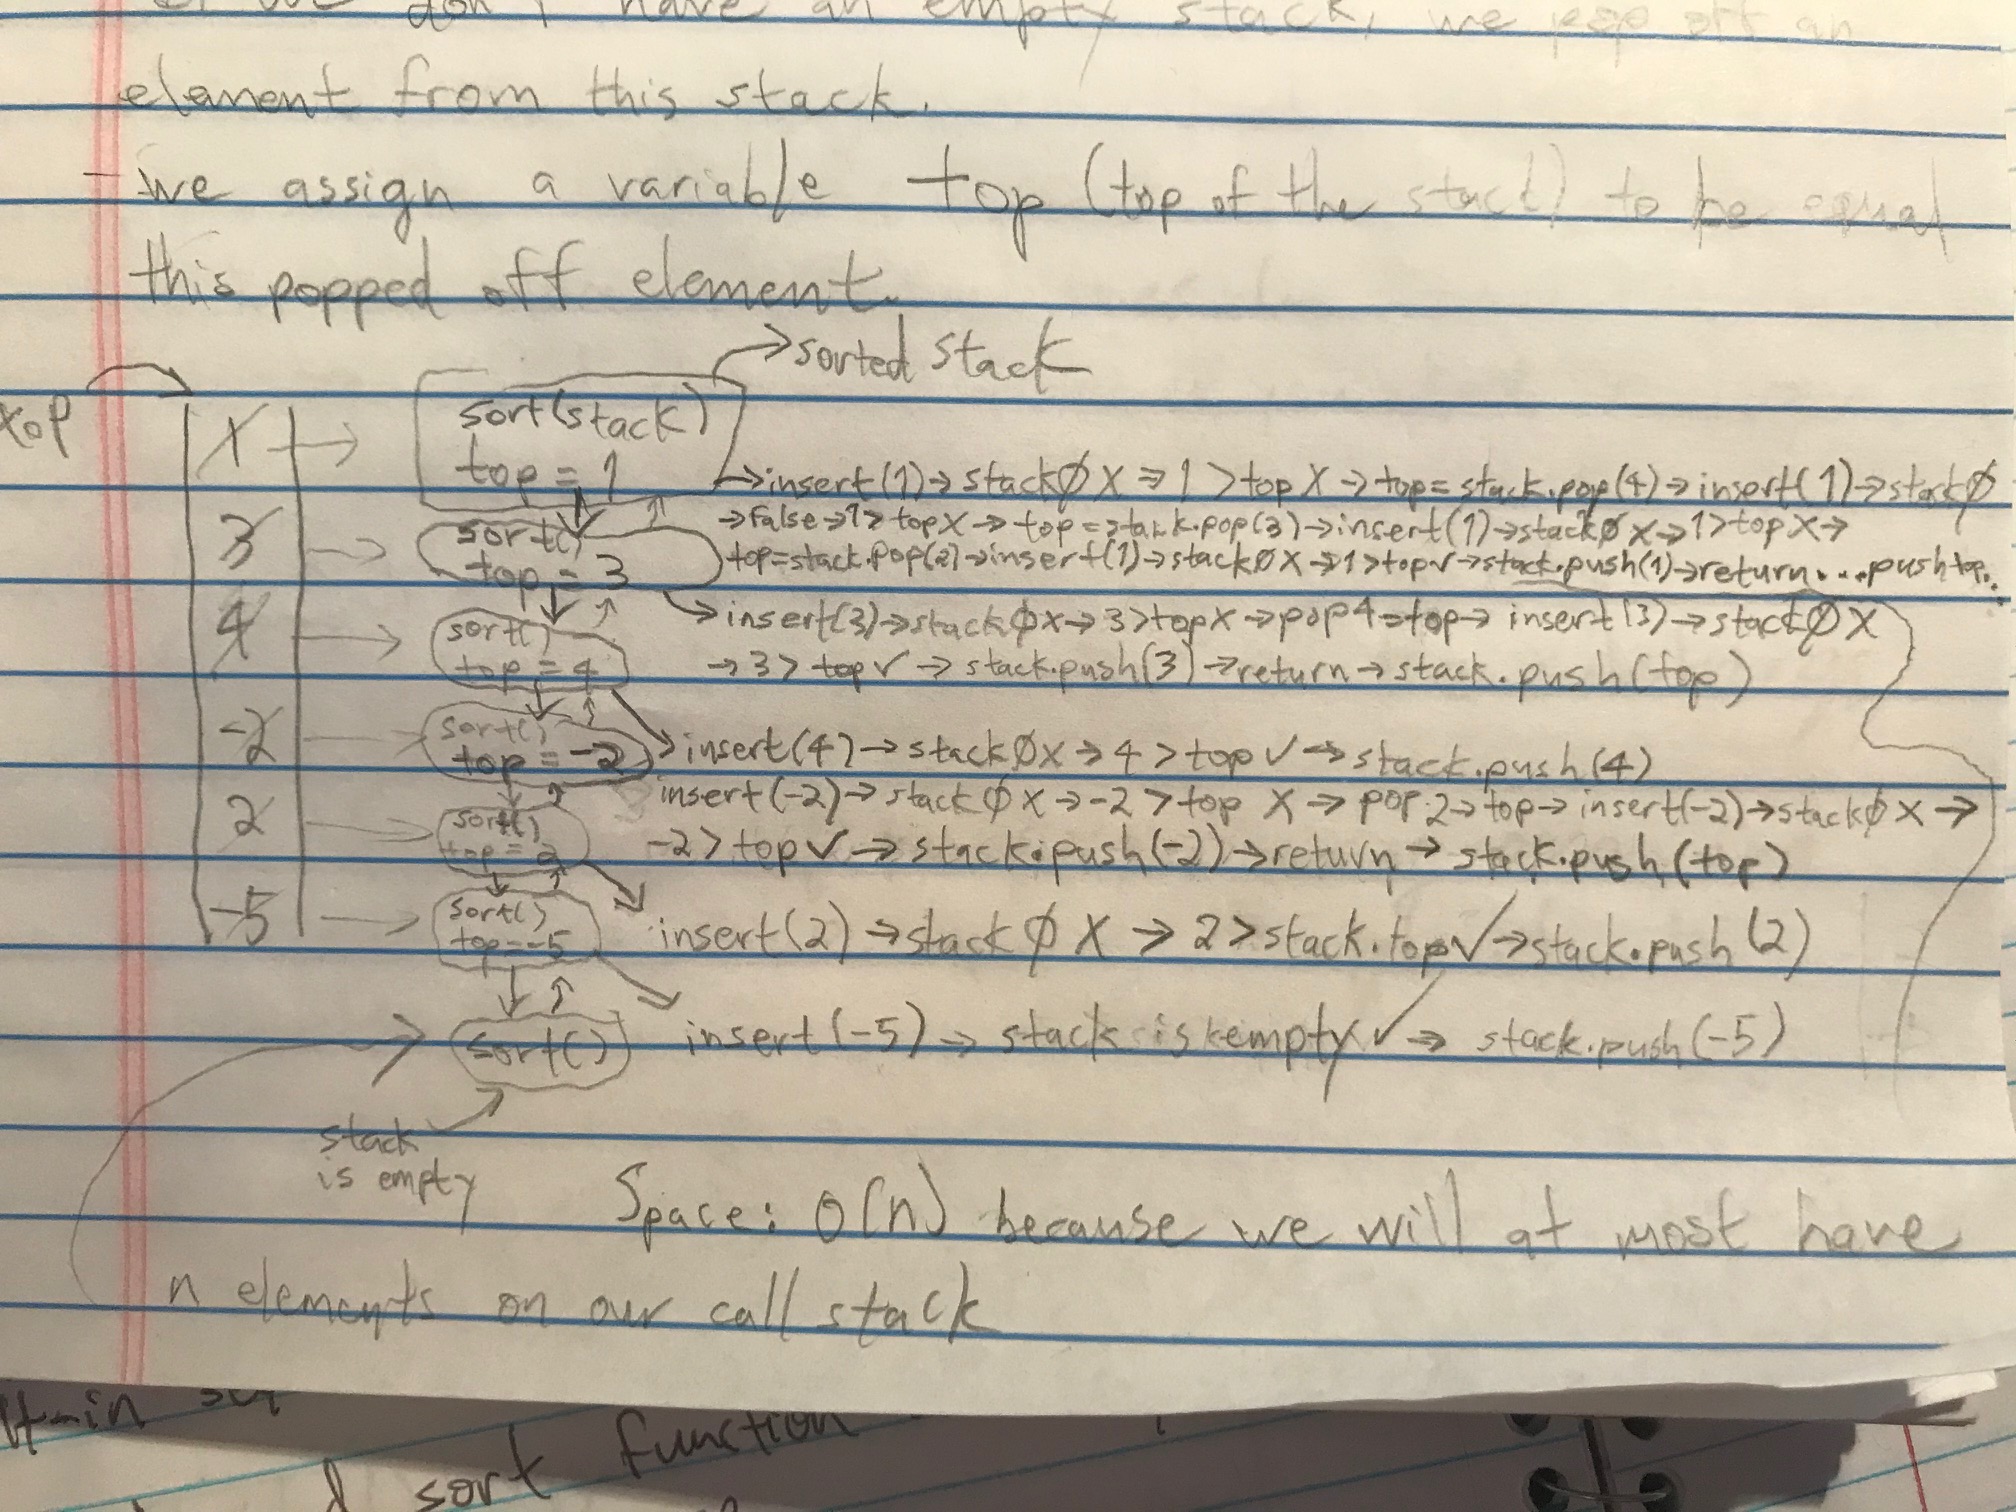 we don't have an empty stack, we pop off an
element from this stack.
- we assign a variable top (top of the stack) to be equal
this popped off element.
→ sorted stack
top
1 → sort(stack)
top = 1
→ insert(1) → stack Ø X → 1 > top X → top = stack.pop(4) → insert(1) → stack Ø
→ False → 1 > top X → top = stack.pop(3) → insert(1) → stack Ø X → 1 > top X →
top = stack.pop(2) → insert(1) → stack Ø X → 1 > top ✓ → stack.push(1) → return....push top..
3 → sort()
top = 3
→ insert(3) → stack Ø X → 3 > top X → pop 4 = top → insert(3) → stack Ø X
→ 3 > top ✓ → stack.push(3) → return → stack.push(top)
4 → sort()
top = 4
→ insert(4) → stack Ø X → 4 > top ✓ → stack.push(4)
-2 → sort()
top = -2
insert(-2) → stack Ø X → -2 > top X → pop 2 → top → insert(-2) → stack Ø X →
-2 > top ✓ → stack.push(-2) → return → stack.push(top)
2 → sort()
top = 2
insert(2) → stack Ø X → 2 > stack.top ✓ → stack.push(2)
-5 → sort()
top = -5
insert(-5) → stack is empty ✓ → stack.push(-5)
→ sort()
stack
is empty
Space: O(n) because we will at most have
n elements on our call stack
sort function